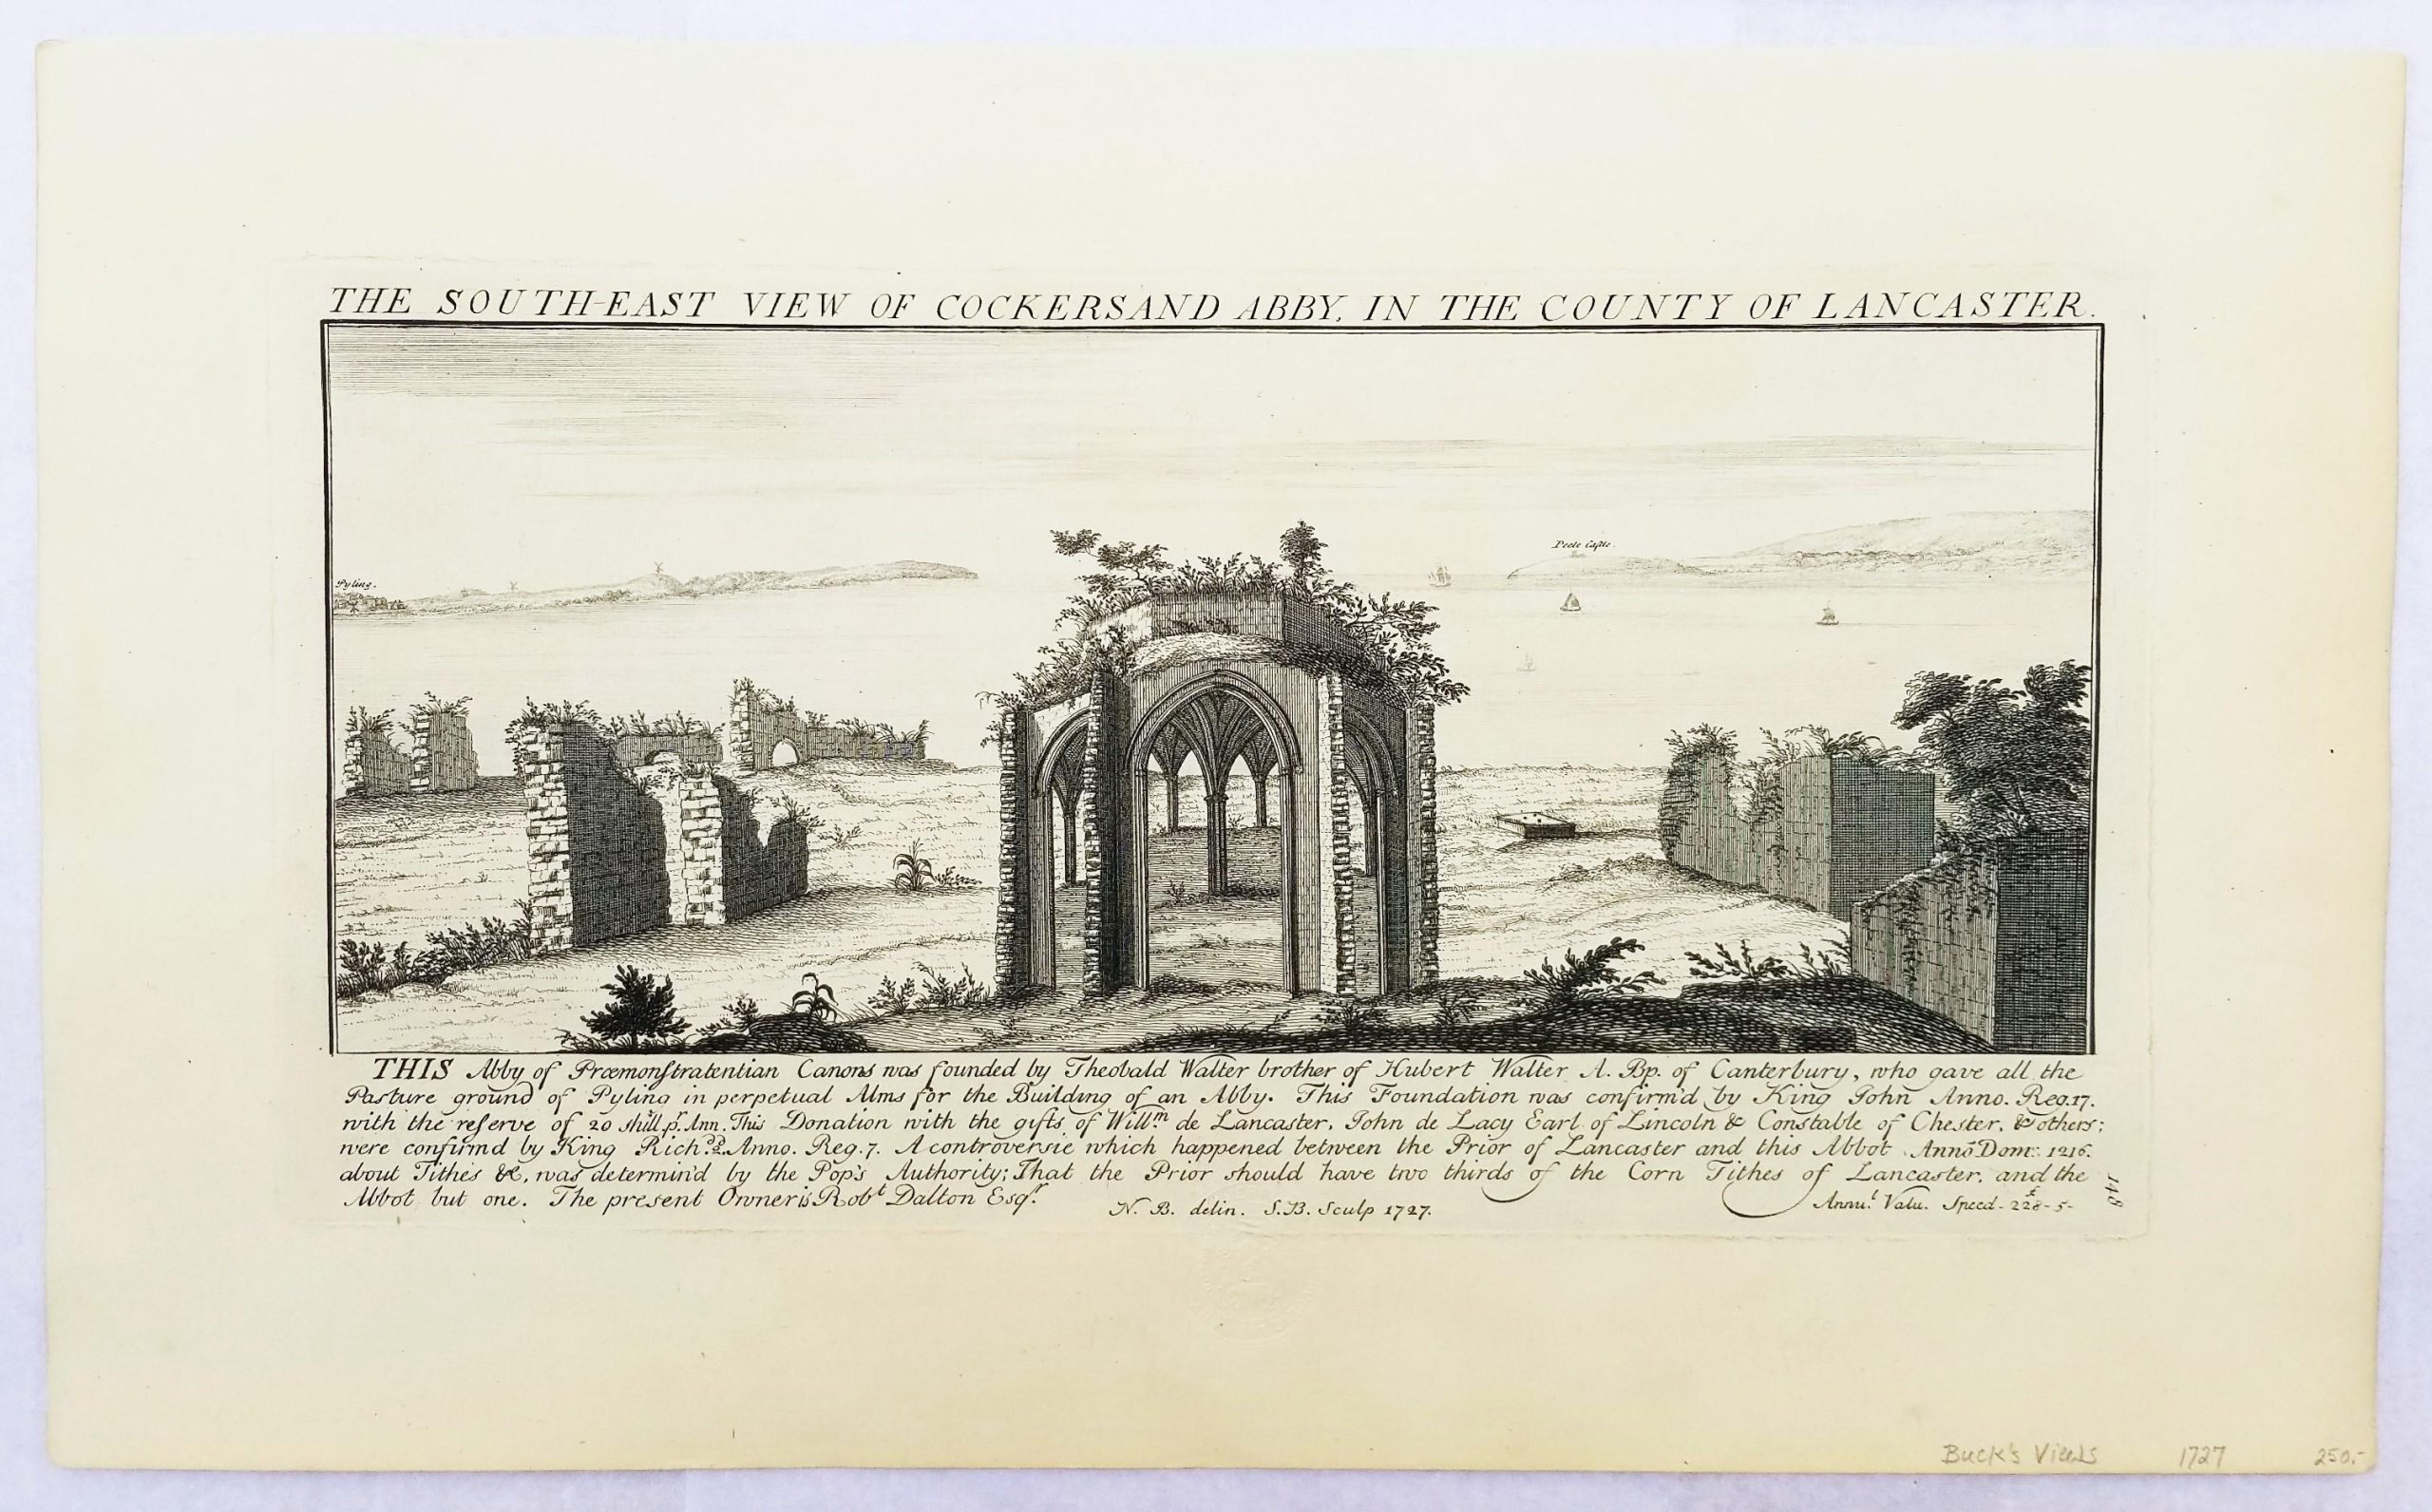 THE SOUTH-EAST VIEW OF COCKERSAND ABBY, IN THE COUNTY OF LANCASTER.
Pyling.
Peele Castle.
THIS Abby of Præmonstratentian Canons was founded by Theobald Walter brother of Hubert Walter A. Bp. of Canterbury, who gave all the
Pasture ground of Pyling in perpetual Alms for the Building of an Abby. This Foundation was confirm'd by King John Anno. Reg. 17.
with the reserve of 20 shill. pr. Ann. This Donation with the gifts of Willm. de Lancaster, John de Lacy Earl of Lincoln & Constable of Chester, & others;
were confirmd by King Richd. 2d. Anno. Reg. 7. A controversie which happened between the Prior of Lancaster and this Abbot Anno Dom: 1216.
about Tithes &c, was determin'd by the Pop's Authority; That the Prior should have two thirds of the Corn Tithes of Lancaster, and the
Abbot but one. The present Owner is Robt Dalton Esqr.
N. B. delin. S. B. Sculp 1727.
Annul. Valu. Speed - 228 - 5 -
148
Buck's Views 1727 250.-